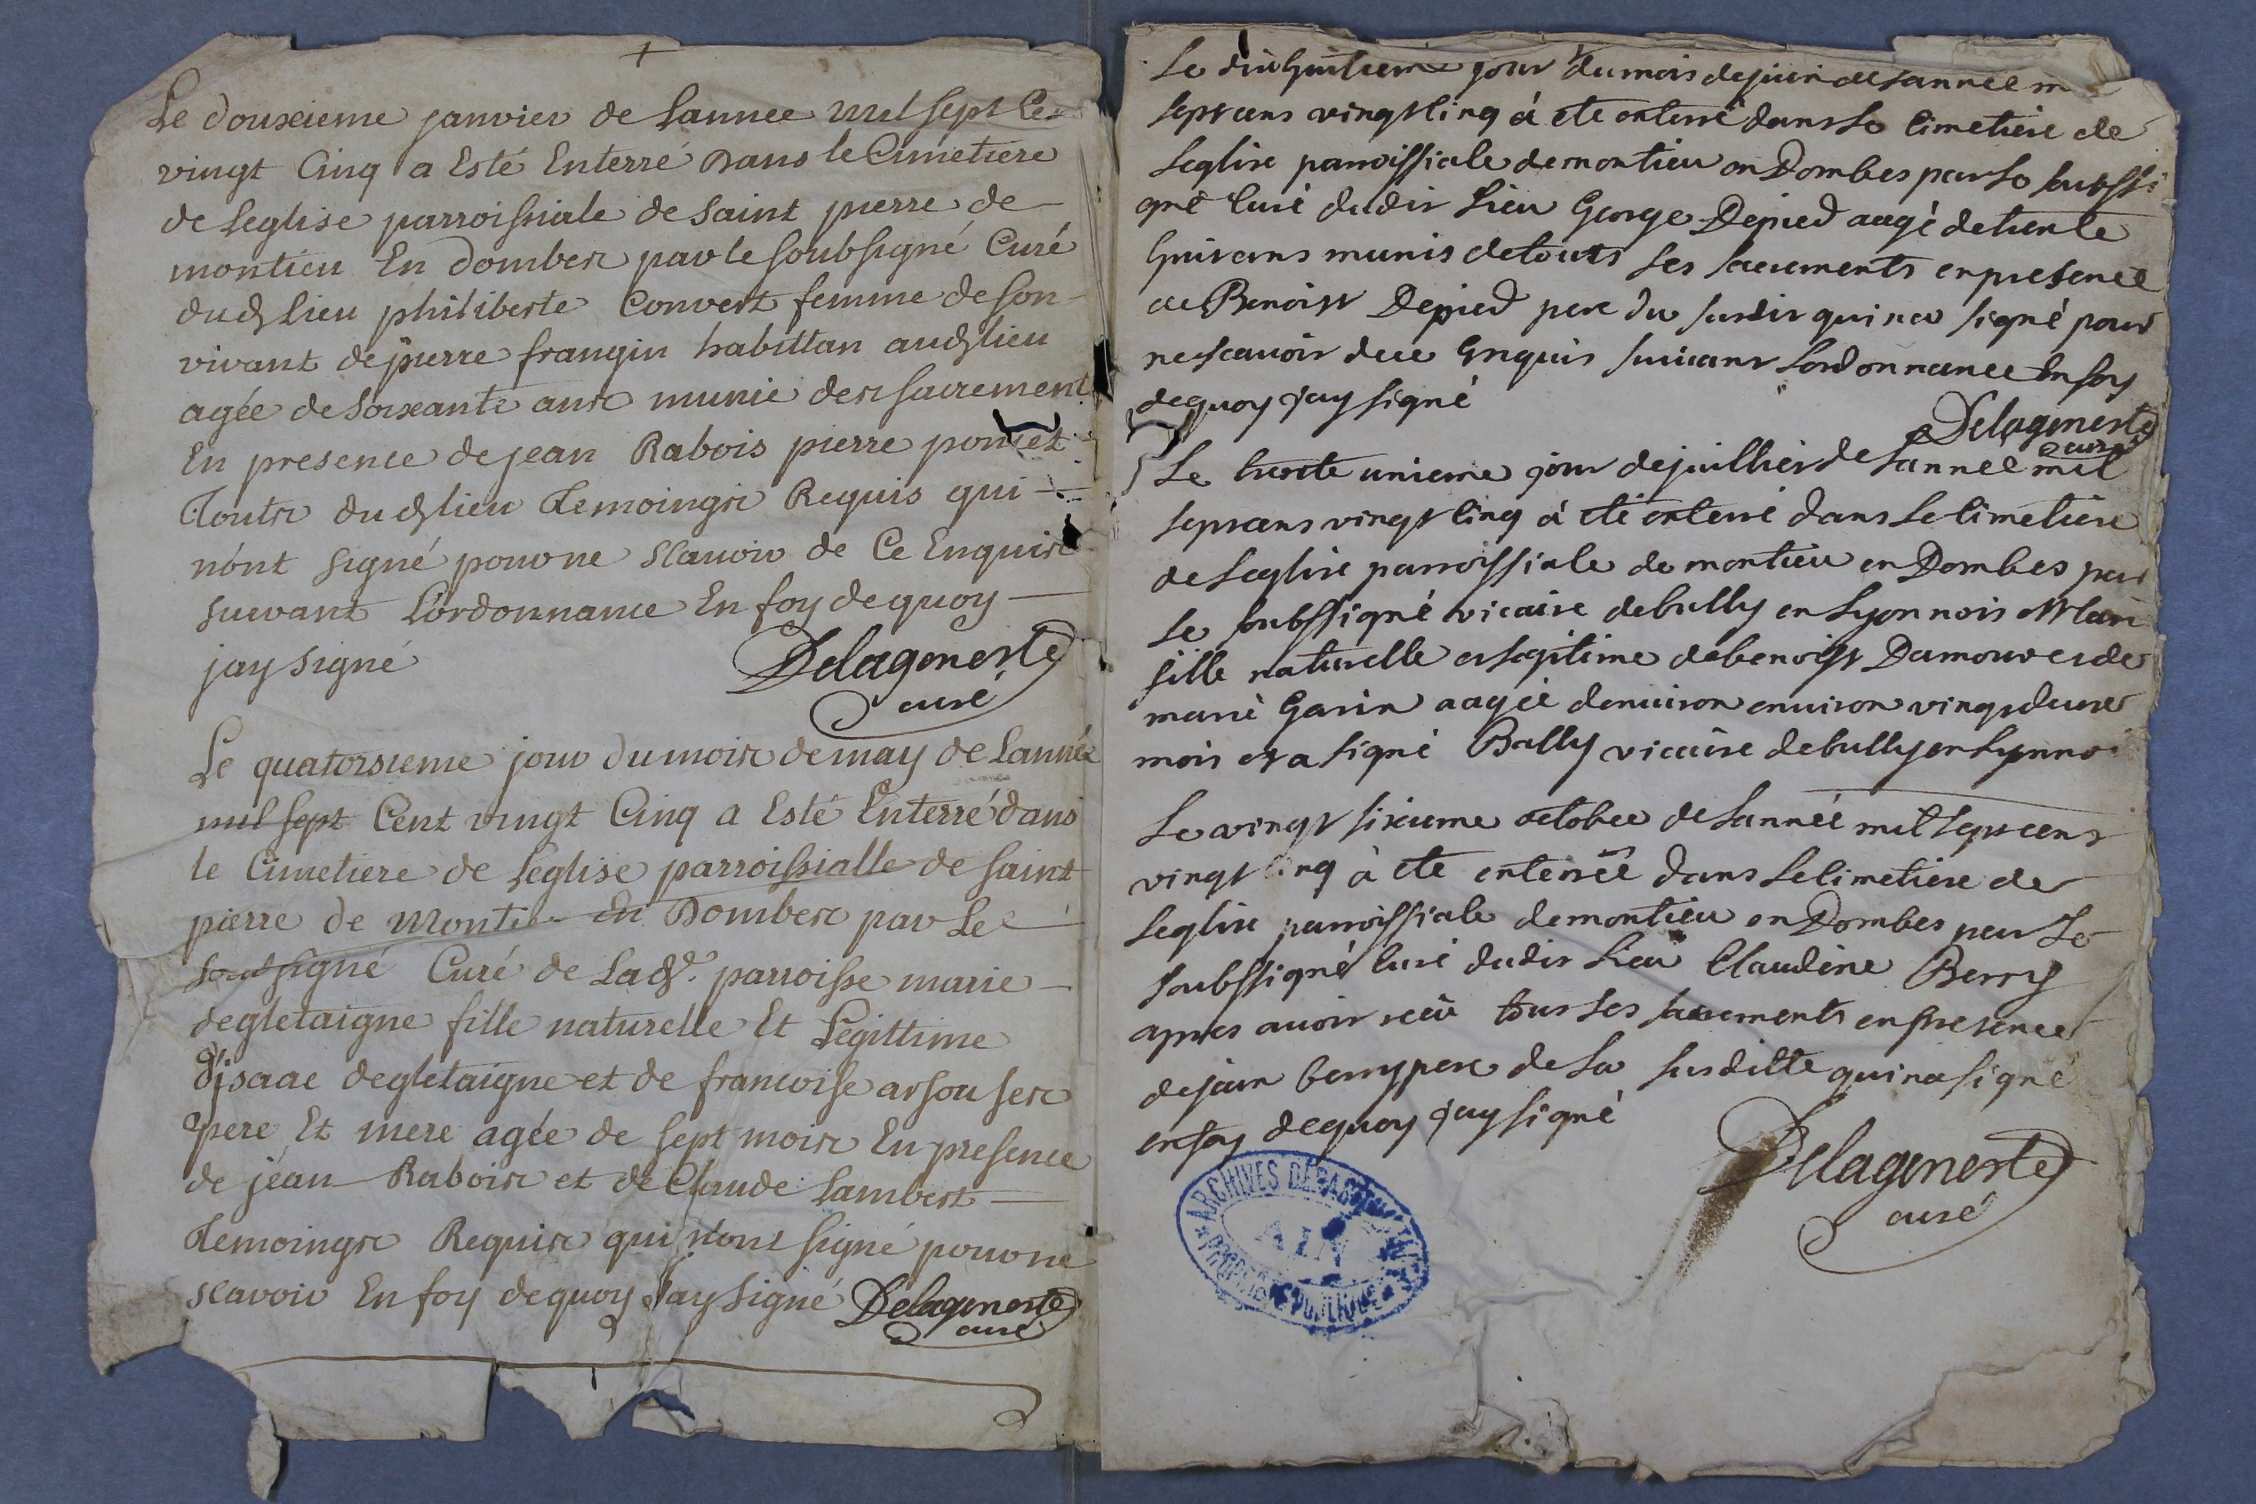 Le douxieme janvier de Lannee mil sept Ce
vingt Cinq a Esté Enterré Dans le Cimetiere
de Leglise parroissiale de Saint pierre de
montieu En dombes par le soubsigné Curé
dud lieu philiberte Convert femme de son
vivant de pierre frangin habittan aud lieu
agée de soixante ans munie des sacrement
En presence de jean Rabois pierre poncet
Touts dud lieu Temoings Requis qui
n'ont signé pour ne scavoir de Ce Enquis
suivant L'ordonnance En foy de quoy
jay signé Delageneste
curé
Le quatorsieme jour du mois de may de Lannée
mil sept Cent vingt Cinq a Esté Enterré dans
le Cimetiere de Leglise parroissialle de saint
pierre de Montieu En Dombes par Le
soubsigné Curé de Lad. parroisse marie
degletaigne fille naturelle Et Legittime
d'isaac degletaigne et de francoise arsou ses
pere Et mere agée de sept mois En presence
de jean Rabois et de Claude Lambert
Temoings Requis qui n'ont signé pour ne
scavoir En foy de quoy Jay signé Delageneste
curé
Le dixhuitieme jour du mois de juin de Lannee m
sept cens vingt cinq à ete enterré dans Le cimetiere de
Leglise parroissiale de montieu en Dombes par Le soubssi
gné curé dudit Lieu George Depied aagé de trente
huit ans munis de touts ses sacrements en presence
de Benoist Depied pere du susdit qui na signé pour
ne scavoir de ce Enquis suivant Lordonnance En foy
de quoy jay signé
Delageneste
curé
Le trente unieme jour de juillet de Lannee mil
sept cens vingt cinq à eté enterré dans Le cimetiere
de Leglise parroissiale de montieu en Dombes par
Le soubssigné vicaire de bully en Lyonnois Mari
fille naturelle et Legitime de benoist Damour et de
marie Garin aagée denviron environ vingt deux
mois et a signé Bally vicaire de bully en Lyonnoi
Le vingt sixieme octobre de Lannée mil sept cens
vingt cinq à ete enterrée dans Le cimetiere de
Leglise parroissiale de montieu en Dombes par Le
soubssigné curé dudit Lieu Claudine Berry
apres avoir recu tous ses sacrements en presence
de jean berry pere de La susditte qui na signé
en foy de quoy jay signé
Delageneste
curé
ARCHIVES DÉPARTEMENTALES
AIN
PROPRIÉTÉ PUBLIQUE